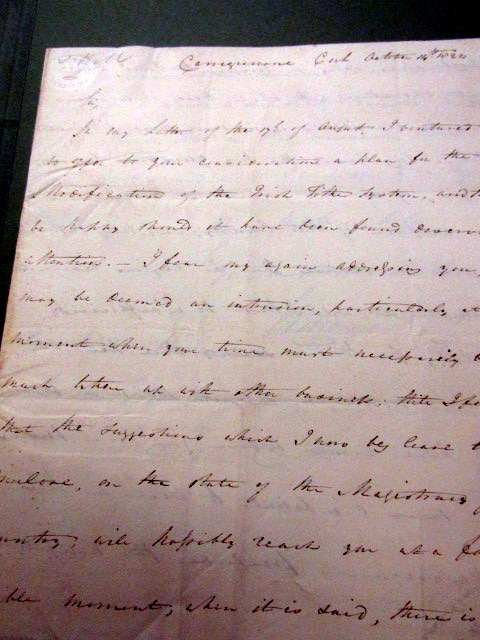 Carrigmore Cork October 14th
Sir,
In my Letter of the 17th of August I ventured
to offer to your consideration a plan for the
Modification of the Irish Tithe System, and
be happy should it have been found deserving
attention. — I fear my again addressing you,
may be deemed an intrusion, particularly at
moment when your time must necessarily be
much taken up with other business; still I
that the suggestions which I now beg leave to
enclose, on the state of the Magistracy
country, will possibly reach you at a
ble moment, when it is said, there is